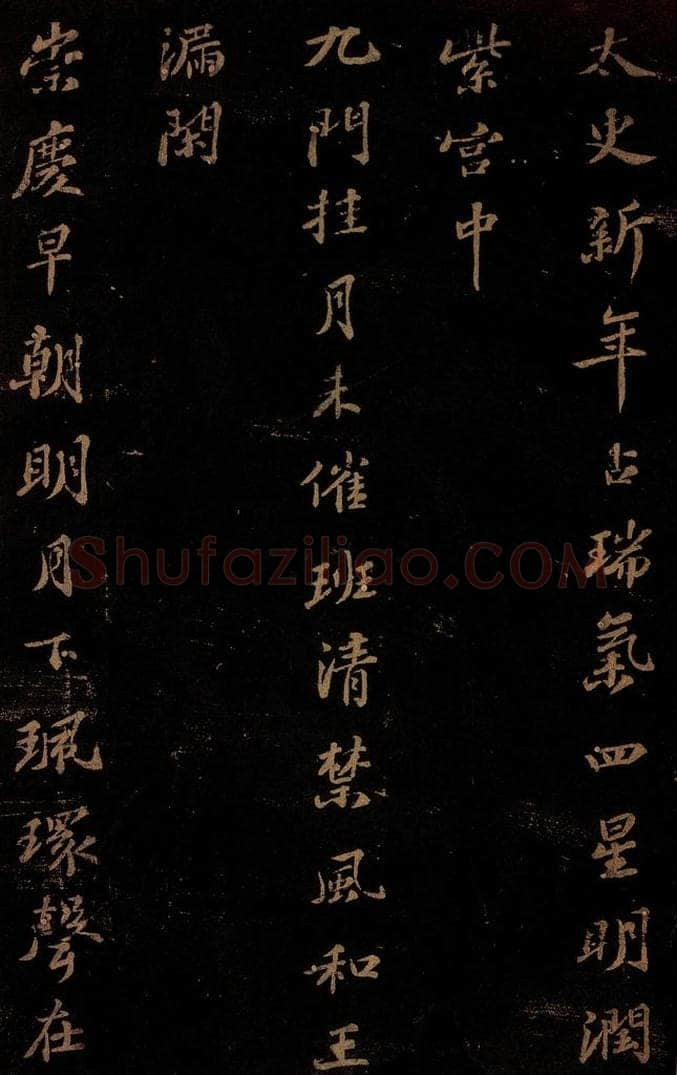 太史新年占瑞氣四星明潤
紫宮中
九門挂月未催班清禁風和玉
漏閑
崇慶早朝明月下珮環聲在
Shufaziliao.COM